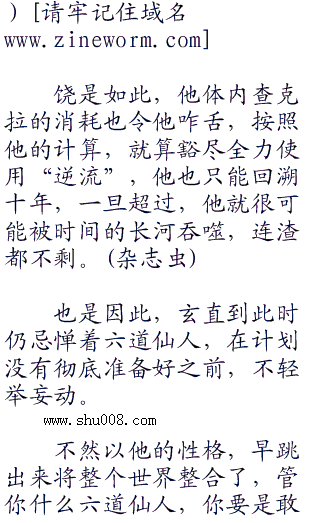 ）[请牢记住域名
www.zineworm.com]
饶是如此，他体内查克
拉的消耗也令他咋舌，按照
他的计算，就算豁尽全力使
用“逆流”，他也只能回溯
十年，一旦超过，他就很可
能被时间的长河吞噬，连渣
都不剩。(杂志虫)
也是因此，玄直到此时
仍忌惮着六道仙人，在计划
没有彻底准备好之前，不轻
举妄动。
www.shu008.com
不然以他的性格，早跳
出来将整个世界整合了，管
你什么六道仙人，你要是敢